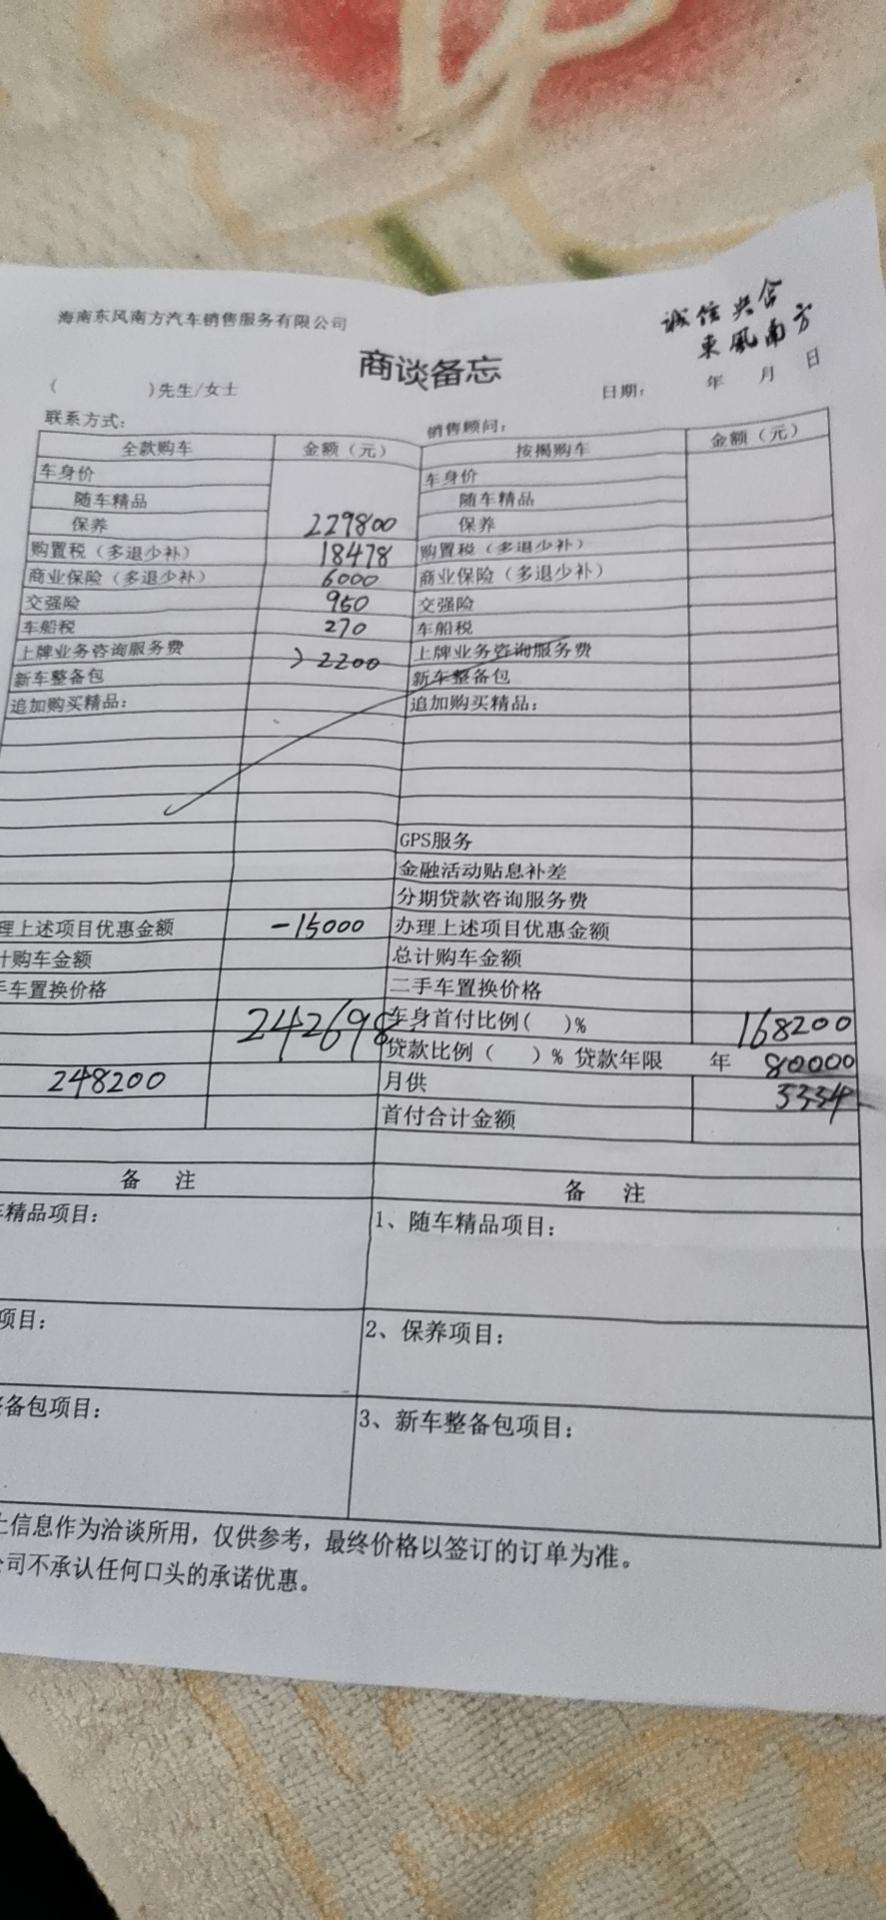 海南东风南方汽车销售服务有限公司
诚信共合
東風南方
商谈备忘
( )先生/女士 日期: 年 月 日
联系方式: 销售顾问:
全款购车 金额（元） 按揭购车 金额（元）
车身价 车身价
随车精品 随车精品
保养 229800 保养
购置税（多退少补） 18478 购置税（多退少补）
商业保险（多退少补） 6000 商业保险（多退少补）
交强险 950 交强险
车船税 270 车船税
上牌业务咨询服务费 2200 上牌业务咨询服务费
新车整备包 新车整备包
追加购买精品: 追加购买精品:
GPS服务
金融活动贴息补差
分期贷款咨询服务费
理上述项目优惠金额 -15000 办理上述项目优惠金额
计购车金额 总计购车金额
手车置换价格 二手车置换价格
242698 车身首付比例( )% 168200
贷款比例（ ）% 贷款年限 年 80000
248200 月供 3334
首付合计金额
备 注 备 注
车精品项目: 1、随车精品项目:
项目: 2、保养项目:
备包项目: 3、新车整备包项目:
上信息作为洽谈所用，仅供参考，最终价格以签订的订单为准。
公司不承认任何口头的承诺优惠。